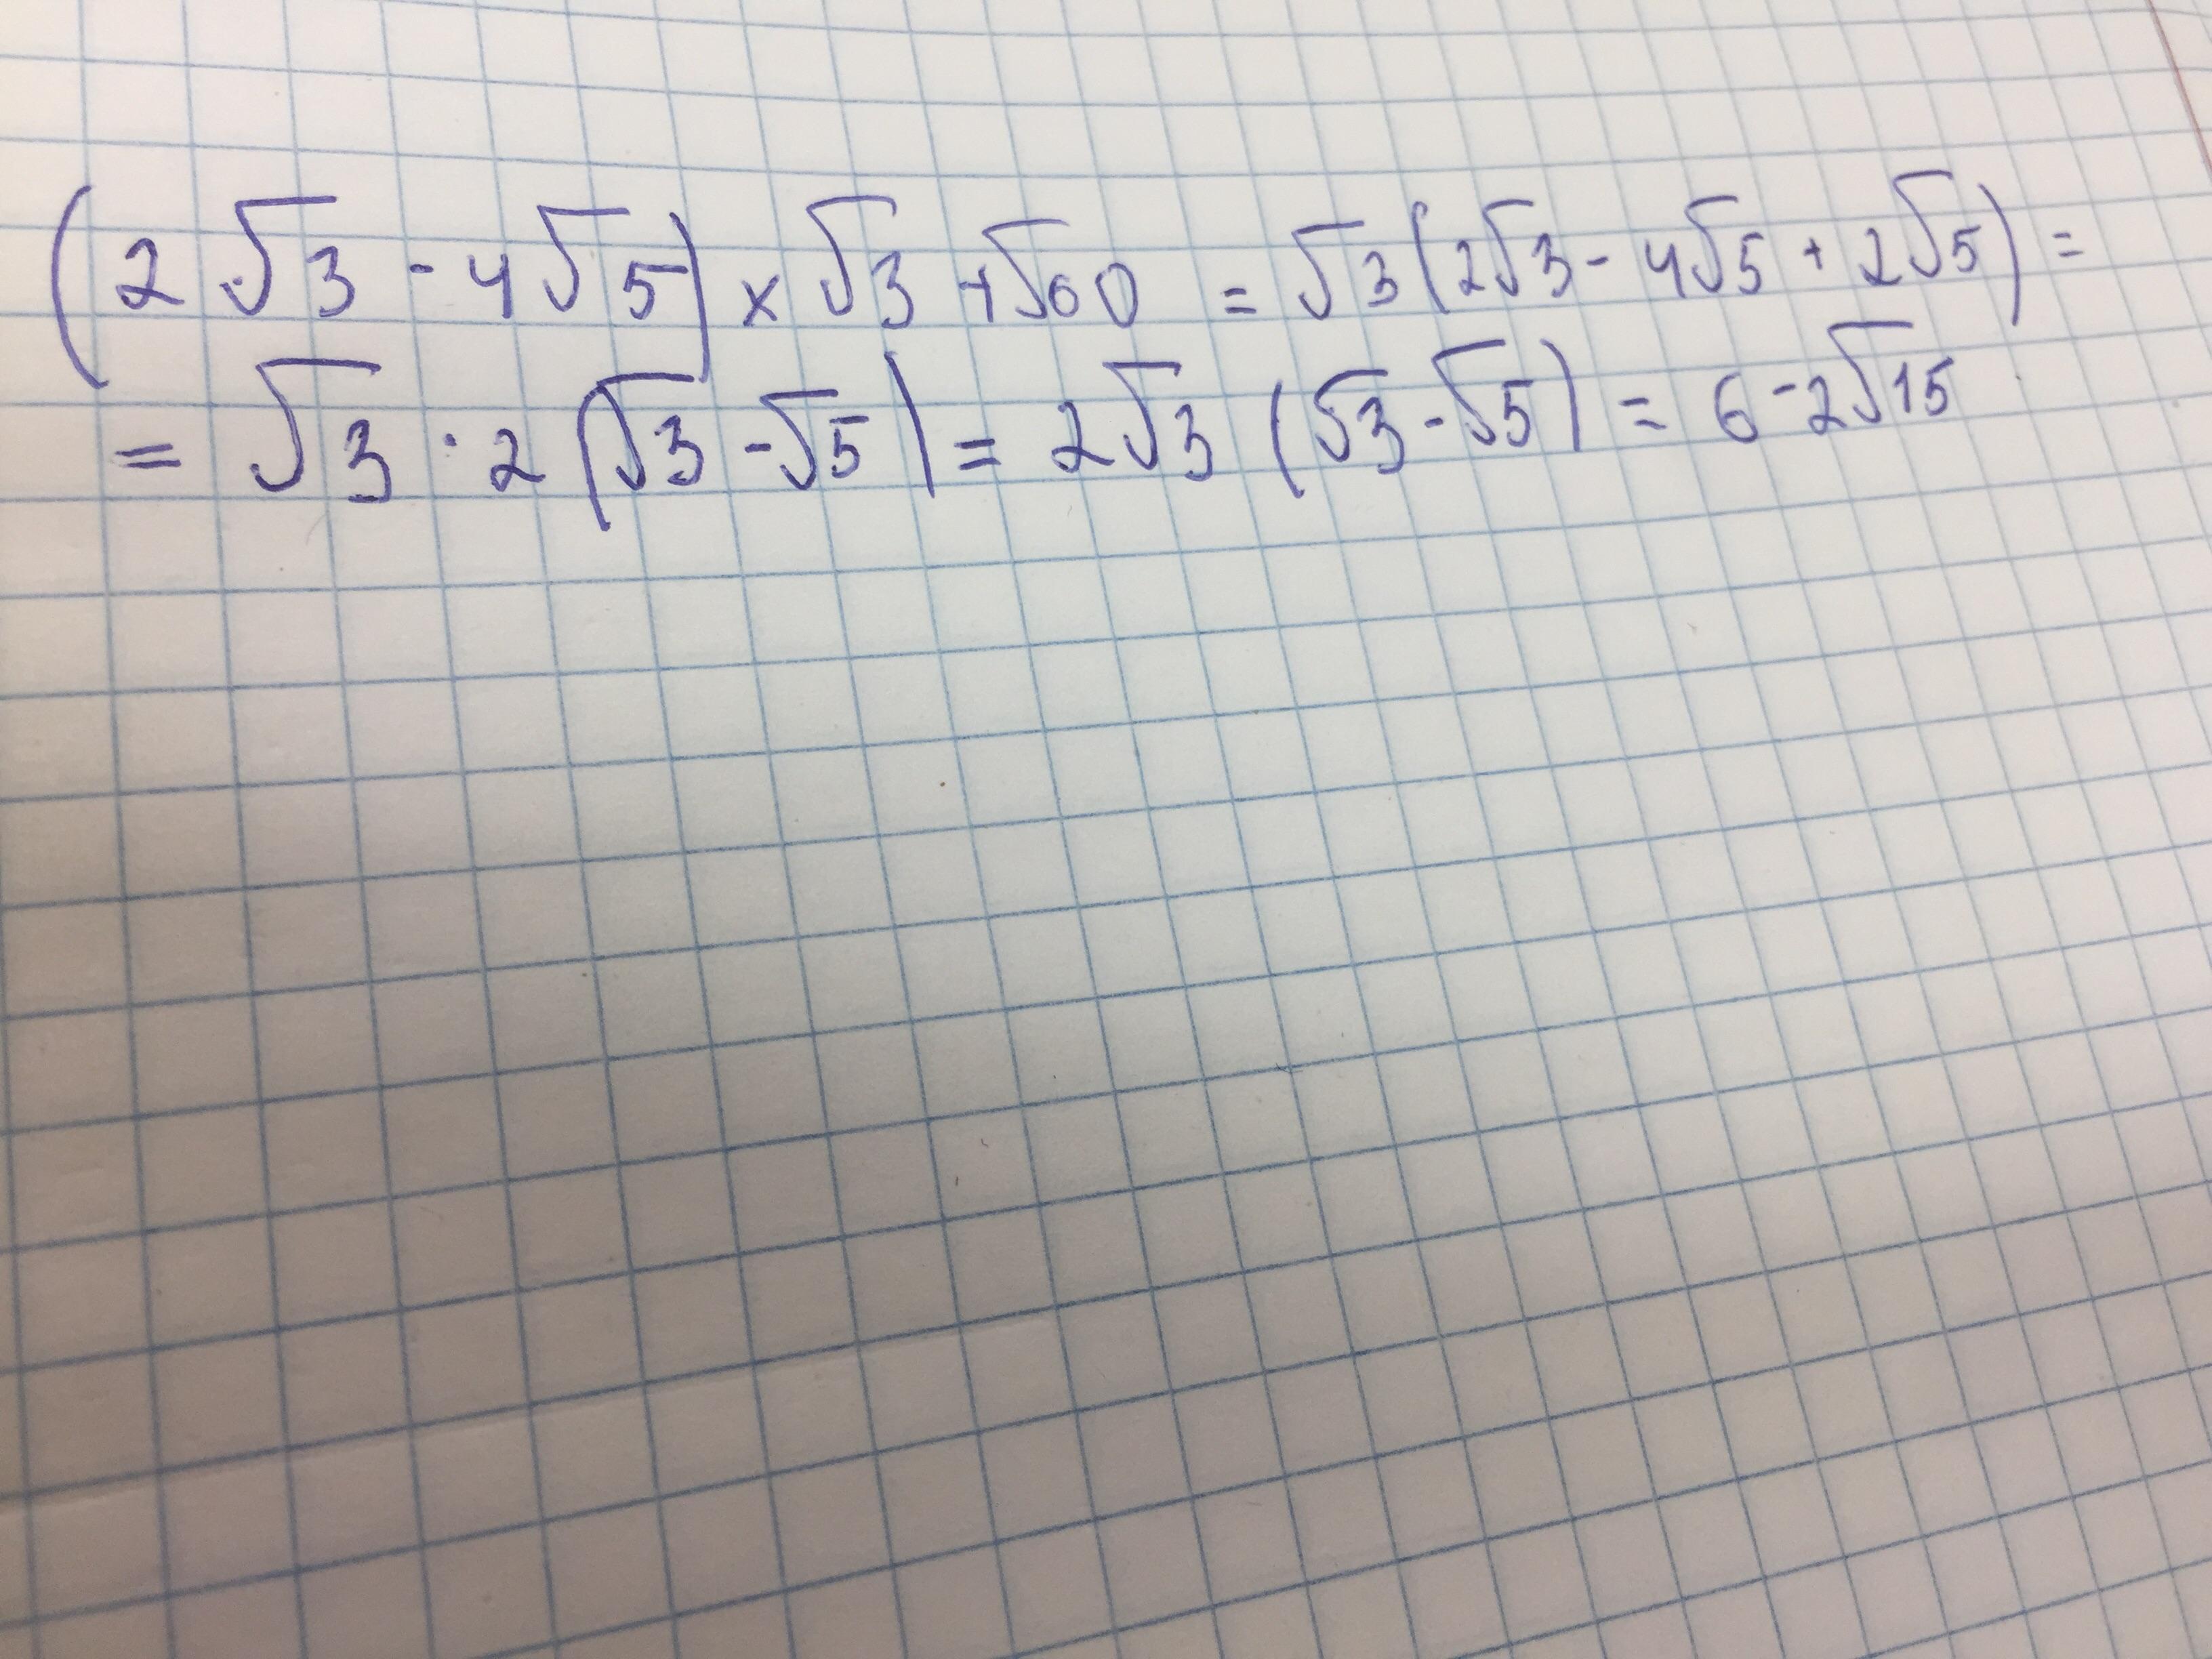 (2√3 - 4√5) × √3 + √60 = √3(2√3 - 4√5 + 2√5) =
= √3 · 2(√3 - √5) = 2√3 (√3 - √5) = 6 - 2√15